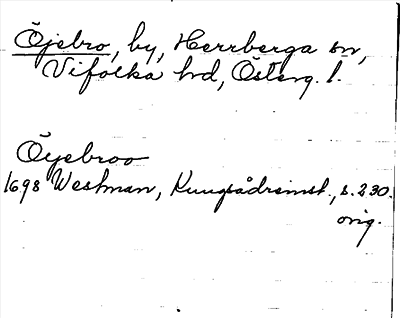 Öjebro, by, Herrberga sn,
Vifolka hd, Österg. l.
Öyebroo
1698 Westman, Kungsådreinst., s. 230.
orig.